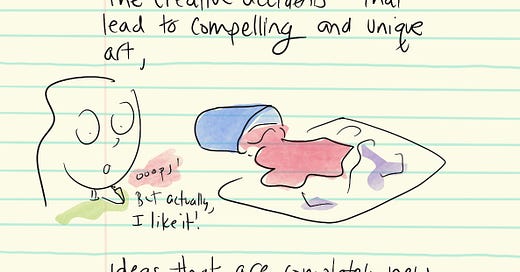 The creative accidents that
lead to compelling and unique
art,
ooops!
But actually,
I like it!
Ideas that are completely new